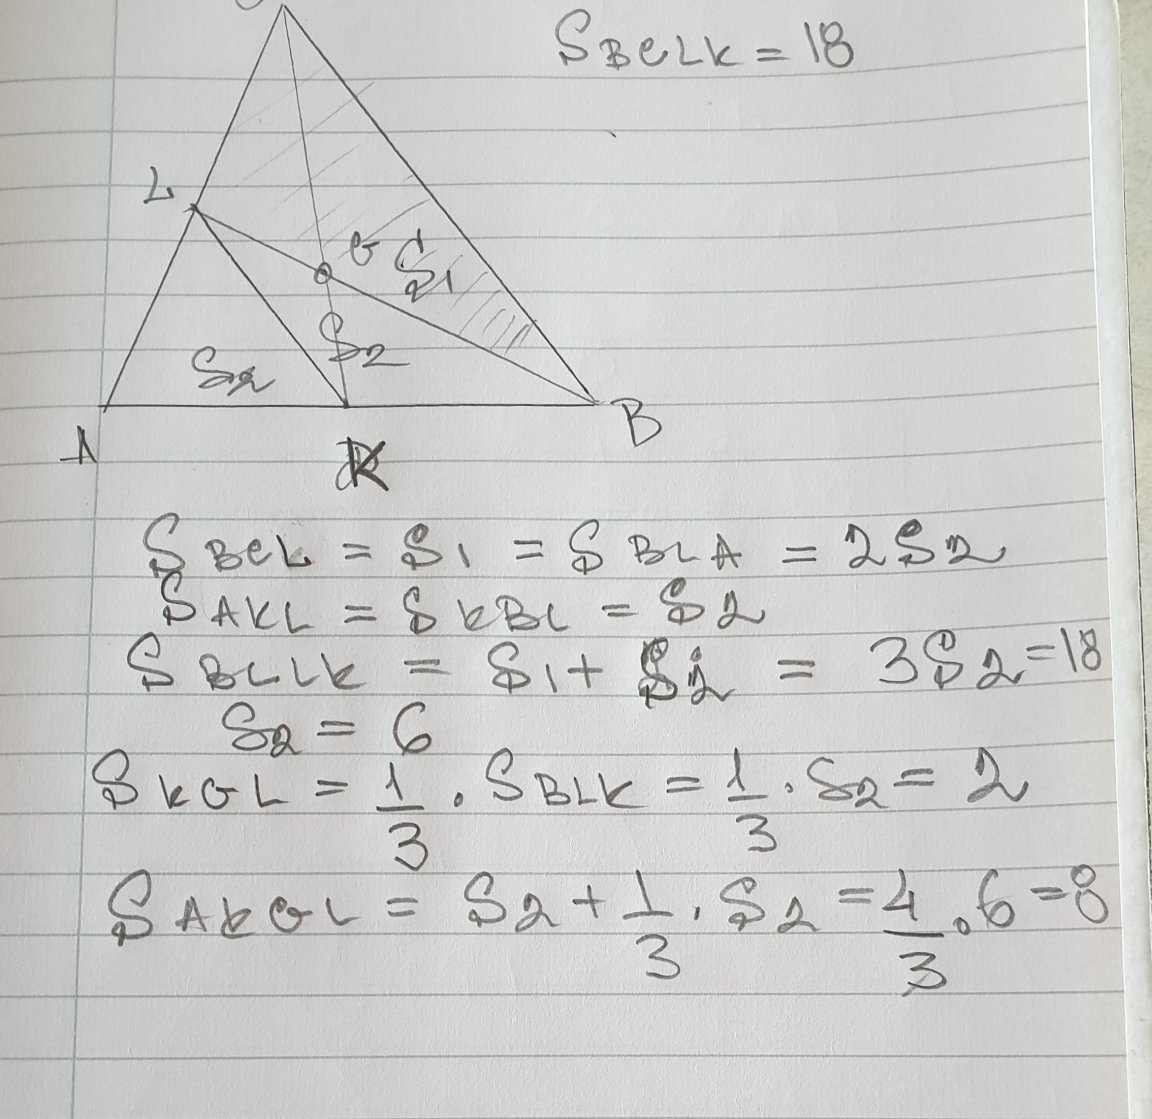 S BCLK = 18
L
G S1
S2
S2
A K B
S BCL = S1 = S BLA = 2S2
S AKL = S KBL = S2
S BCLK = S1 + S2 = 3S2 = 18
S2 = 6
S KGL = 1/3 . S BLK = 1/3 . S2 = 2
S AKGL = S2 + 1/3 . S2 = 4/3 . 6 = 8